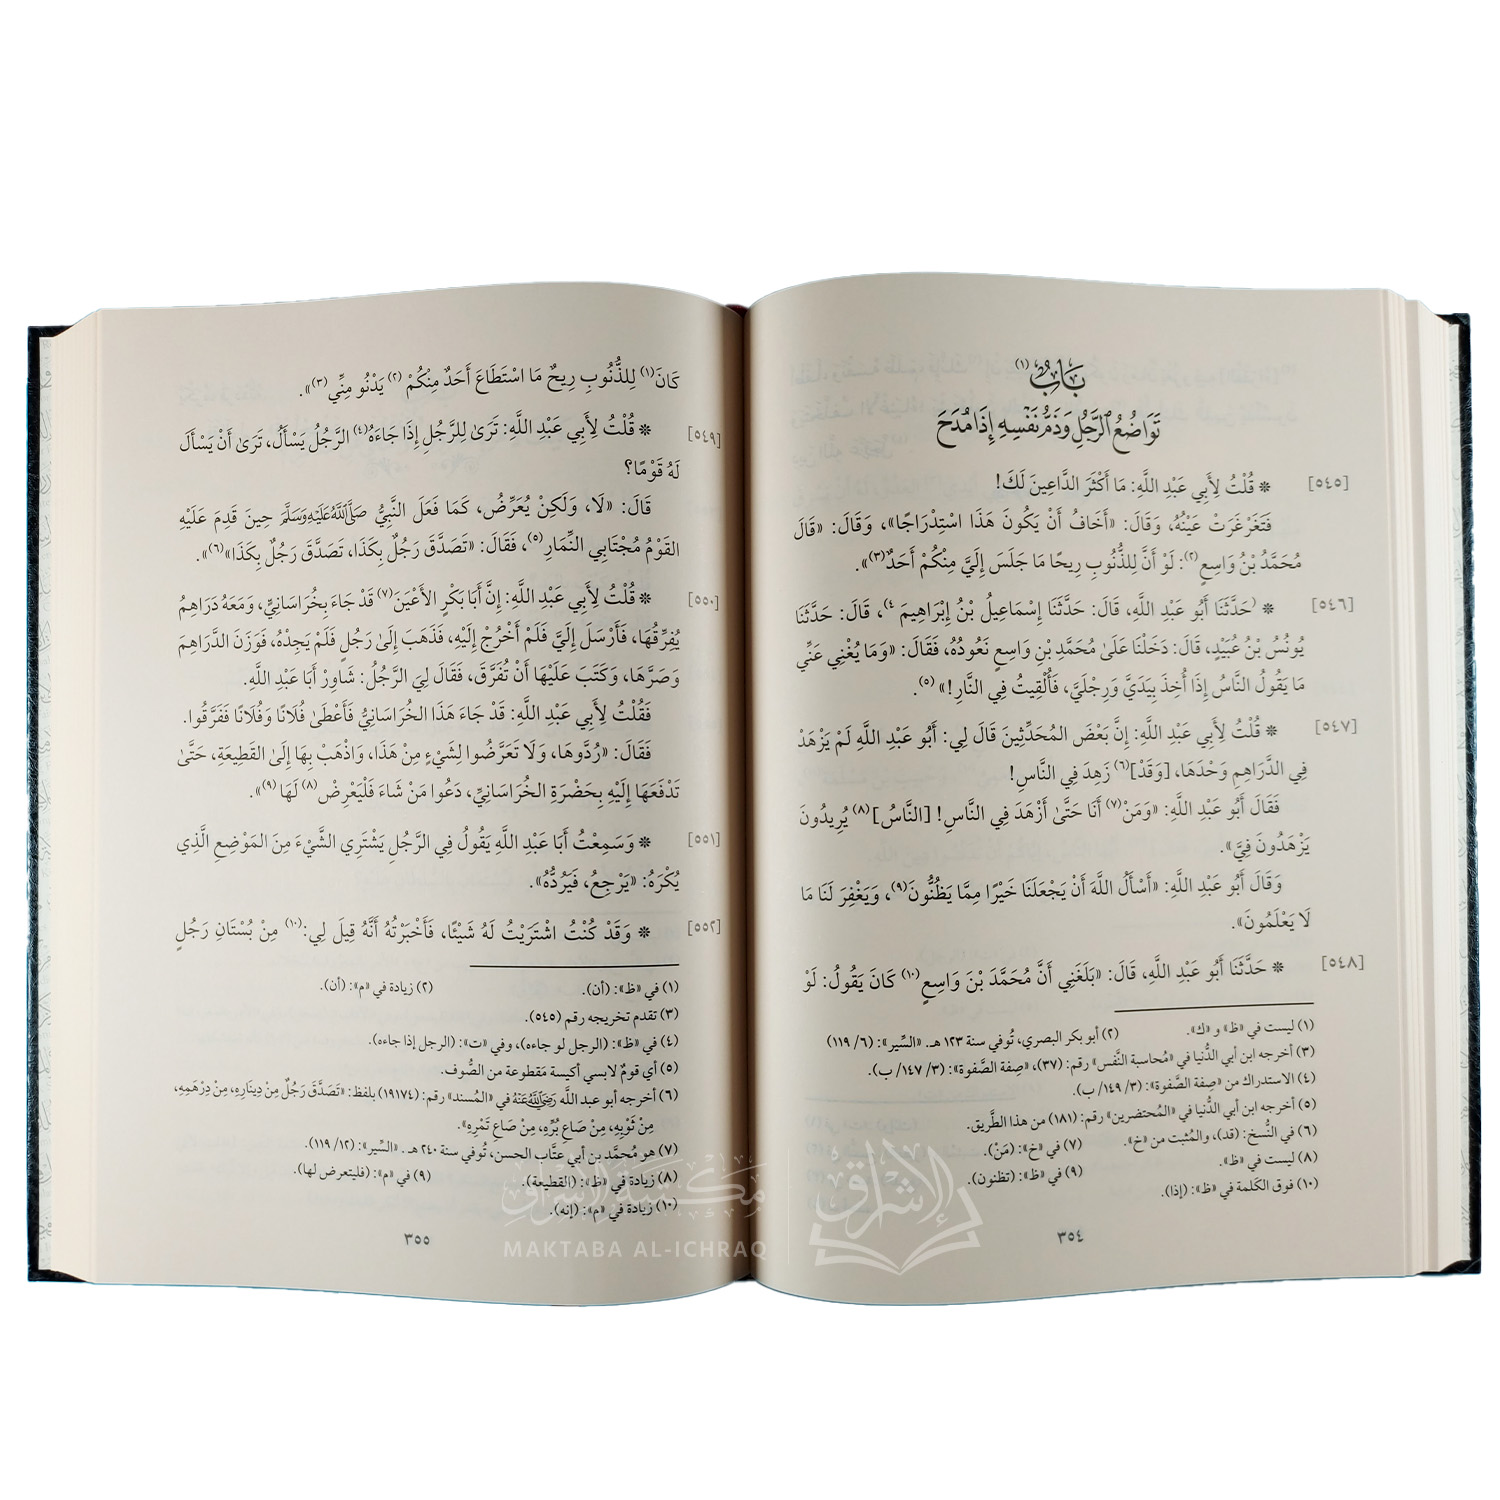 بَابُ (١)
تَوَاضُعُ الرَّجُلِ وَذَمُّ نَفْسِهِ إِذَا مُدِحَ
[٥٤٥] * قُلْتُ لِأَبِي عَبْدِ اللَّهِ: مَا أَكْثَرَ الدَّاعِينَ لَكَ!
فَتَغَرْغَرَتْ عَيْنُهُ، وَقَالَ: «أَخَافُ أَنْ يَكُونَ هَذَا اسْتِدْرَاجًا»، وَقَالَ: «قَالَ
مُحَمَّدُ بْنُ وَاسِعٍ (٢): لَوْ أَنَّ لِلذُّنُوبِ رِيحًا مَا جَلَسَ إِلَيَّ مِنْكُمْ أَحَدٌ (٣)».
[٥٤٦] * (حَدَّثَنَا أَبُو عَبْدِ اللَّهِ، قَالَ: حَدَّثَنَا إِسْمَاعِيلُ بْنُ إِبْرَاهِيمَ ٤)، قَالَ: حَدَّثَنَا
يُونُسُ بْنُ عُبَيْدٍ، قَالَ: دَخَلْنَا عَلَىٰ مُحَمَّدِ بْنِ وَاسِعٍ نَعُودُهُ، فَقَالَ: «وَمَا يُغْنِي عَنِّي
مَا يَقُولُ النَّاسُ إِذَا أُخِذَ بِيَدَيَّ وَرِجْلَيَّ، فَأُلْقِيتُ فِي النَّارِ!» (٥).
[٥٤٧] * قُلْتُ لِأَبِي عَبْدِ اللَّهِ: إِنَّ بَعْضَ المُحَدِّثِينَ قَالَ لِي: أَبُو عَبْدِ اللَّهِ لَمْ يَزْهَدْ
فِي الدَّرَاهِمِ وَحْدَهَا، [وَقَدْ] (٦) زَهِدَ فِي النَّاسِ!
فَقَالَ أَبُو عَبْدِ اللَّهِ: «وَمَنْ (٧) أَنَا حَتَّىٰ أَزْهَدَ فِي النَّاسِ! [النَّاسُ] (٨) يُرِيدُونَ
يَزْهَدُونَ فِيَّ».
وَقَالَ أَبُو عَبْدِ اللَّهِ: «أَسْأَلُ اللَّهَ أَنْ يَجْعَلَنَا خَيْرًا مِمَّا يَظُنُّونَ (٩)، وَيَغْفِرَ لَنَا مَا
لَا يَعْلَمُونَ».
[٥٤٨] * حَدَّثَنَا أَبُو عَبْدِ اللَّهِ، قَالَ: «بَلَغَنِي أَنَّ مُحَمَّدَ بْنَ وَاسِعٍ (١٠) كَانَ يَقُولُ: لَوْ
(١) ليست في «ظ» و«ك». (٢) أبو بكر البصري، تُوفي سنة ١٢٣ هـ. «السِّير»: (٦/ ١١٩)
(٣) أخرجه ابن أبي الدُّنيا في «مُحاسبة النَّفس» رقم: (٣٧)، «صِفة الصَّفوة»: (٣/ ١٤٧/ ب).
(٤) الاستدراك من «صِفة الصَّفوة»: (٣/ ١٤٩/ ب).
(٥) أخرجه ابن أبي الدُّنيا في «المُحتضرين» رقم: (١٨١) من هذا الطَّريق.
(٦) في النُّسخ: (قد)، والمُثبت من «خ». (٧) في «خ»: (مَنْ).
(٨) ليست في «ظ». (٩) في «ظ»: (تظنون).
(١٠) فوق الكَلمة في «ظ»: (إذا).
٣٥٤
كَانَ (١) لِلذُّنُوبِ رِيحٌ مَا اسْتَطَاعَ أَحَدٌ مِنْكُمْ (٢) يَدْنُو مِنِّي (٣)».
[٥٤٩] * قُلْتُ لِأَبِي عَبْدِ اللَّهِ: تَرَىٰ لِلرَّجُلِ إِذَا جَاءَهُ (٤) الرَّجُلُ يَسْأَلُ، تَرَىٰ أَنْ يَسْأَلَ
لَهُ قَوْمًا؟
قَالَ: «لَا، وَلَكِنْ يُعَرِّضُ، كَمَا فَعَلَ النَّبِيُّ صَلَّى اللَّهُ عَلَيْهِ وَسَلَّمَ حِينَ قَدِمَ عَلَيْهِ
القَوْمُ مُجْتَابِي النِّمَارِ (٥)، فَقَالَ: «تَصَدَّقَ رَجُلٌ بِكَذَا، تَصَدَّقَ رَجُلٌ بِكَذَا» (٦)».
[٥٥٠] * قُلْتُ لِأَبِي عَبْدِ اللَّهِ: إِنَّ أَبَا بَكْرٍ الأَعْيَنَ (٧) قَدْ جَاءَ بِخُرَاسَانِيٍّ، وَمَعَهُ دَرَاهِمُ
يُفَرِّقُهَا، فَأَرْسَلَ إِلَيَّ فَلَمْ أَخْرُجْ إِلَيْهِ، فَذَهَبَ إِلَىٰ رَجُلٍ فَلَمْ يَجِدْهُ، فَوَزَنَ الدَّرَاهِمَ
وَصَرَّهَا، وَكَتَبَ عَلَيْهَا أَنْ تُفَرَّقَ، فَقَالَ لِيَ الرَّجُلُ: شَاوِرْ أَبَا عَبْدِ اللَّهِ.
فَقُلْتُ لِأَبِي عَبْدِ اللَّهِ: قَدْ جَاءَ هَذَا الخُرَاسَانِيُّ فَأَعْطَىٰ فُلَانًا وَفُلَانًا فَفَرَّقُوا.
فَقَالَ: «رُدُّوهَا، وَلَا تَعَرَّضُوا لِشَيْءٍ مِنْ هَذَا، وَاذْهَبْ بِهَا إِلَىٰ القَطِيعَةِ، حَتَّىٰ
تَدْفَعَهَا إِلَيْهِ بِحَضْرَةِ الخُرَاسَانِيِّ، دَعُوا مَنْ شَاءَ فَلْيَعْرِضْ (٨) لَهَا (٩)».
[٥٥١] * وَسَمِعْتُ أَبَا عَبْدِ اللَّهِ يَقُولُ فِي الرَّجُلِ يَشْتَرِي الشَّيْءَ مِنَ المَوْضِعِ الَّذِي
يُكْرَهُ: «يَرْجِعُ، فَيَرُدُّهُ».
[٥٥٢] * وَقَدْ كُنْتُ اشْتَرَيْتُ لَهُ شَيْئًا، فَأَخْبَرْتُهُ أَنَّهُ قِيلَ لِي: (١٠) مِنْ بُسْتَانِ رَجُلٍ
(١) في «ظ»: (أن). (٢) زيادة في «م»: (أن).
(٣) تقدم تخريجه رقم (٥٤٥).
(٤) في «ظ»: (الرجل لو جاءه)، وفي «ت»: (الرجل إذا جاءه).
(٥) أي قومٌ لابسي أكيسة مَقطوعة من الصُّوف.
(٦) أخرجه أبو عبد الله رَضِيَ اللَّهُ عَنْهُ في «المُسند» رقم: (١٩١٧٤) بلفظ: «تَصَدَّقَ رَجُلٌ مِنْ دِينَارِهِ، مِنْ دِرْهَمِهِ،
مِنْ ثَوْبِهِ، مِنْ صَاعِ بُرِّهِ، مِنْ صَاعِ تَمْرِهِ».
(٧) هو مُحمَّد بن أبي عتَّاب الحسن، تُوفي سنة ٢٤٠ هـ. «السِّير»: (١٢/ ١١٩).
(٨) زيادة في «ظ»: (القطيعة). (٩) في «م»: (فليتعرض لها).
(١٠) زيادة في «م»: (إنه).
٣٥٥
مكتبة الإشراق
MAKTABA AL-ICHRAQ
الإشراق